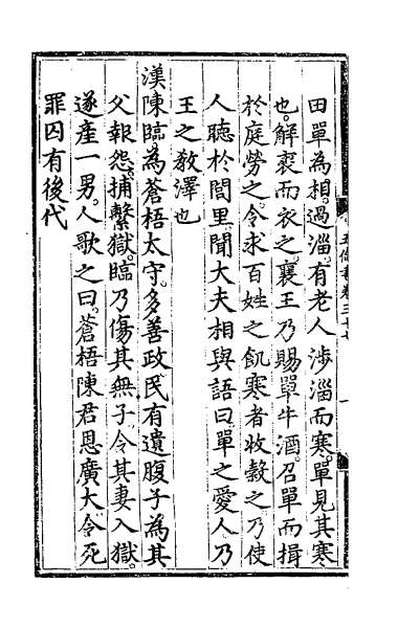 田單為相。過淄。有老人涉淄而寒。單見其寒
也。解裘而衣之。襄王乃賜單牛酒。召單而揖
於庭勞之。令求百姓之飢寒者收穀之。乃使
人聽於閭里。聞大夫相與語曰。單之愛人。乃
王之教澤也
漢陳臨為蒼梧太守。多善政民有遺腹子為其
父報怨。捕繫獄。臨乃傷其無子。令其妻入獄。
遂產一男。人歌之曰。蒼梧陳君恩廣大。令死
罪囚有後代